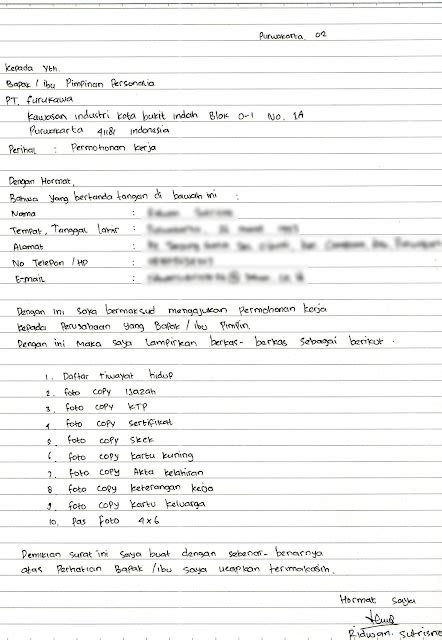 Purwakarta, 02
Kepada Yth.
Bapak / Ibu Pimpinan Personalia
PT. Furukawa
Kawasan Industri Kota Bukit Indah Blok D-1 No. 1A
Purwakarta 41181 Indonesia
Perihal : Permohonan Kerja
Dengan Hormat,
Bahwa yang bertanda tangan di bawah ini :
Nama :
Tempat, Tanggal Lahir :
Alamat :
No Telepon / HP :
E-mail :
Dengan ini saya bermaksud mengajukan Permohonan kerja
kepada Perusahaan yang Bapak / Ibu Pimpin.
Dengan ini Maka saya Lampirkan berkas- berkas sebagai berikut .
1. Daftar riwayat hidup
2. foto copy Ijazah
3. foto copy KTP
4 foto copy sertifikat
5. foto copy skck
6. foto copy kartu kuning
7. foto copy Akta kelahiran
8 foto copy keterangan kerja
9. foto copy kartu keluarga
10. Pas foto 4x6
Demikian surat ini saya buat dengan sebenar- benarnya
atas Perhatian Bapak /Ibu saya ucapkan terimakasih.
Hormat saya
Ridwan. Sutrisno